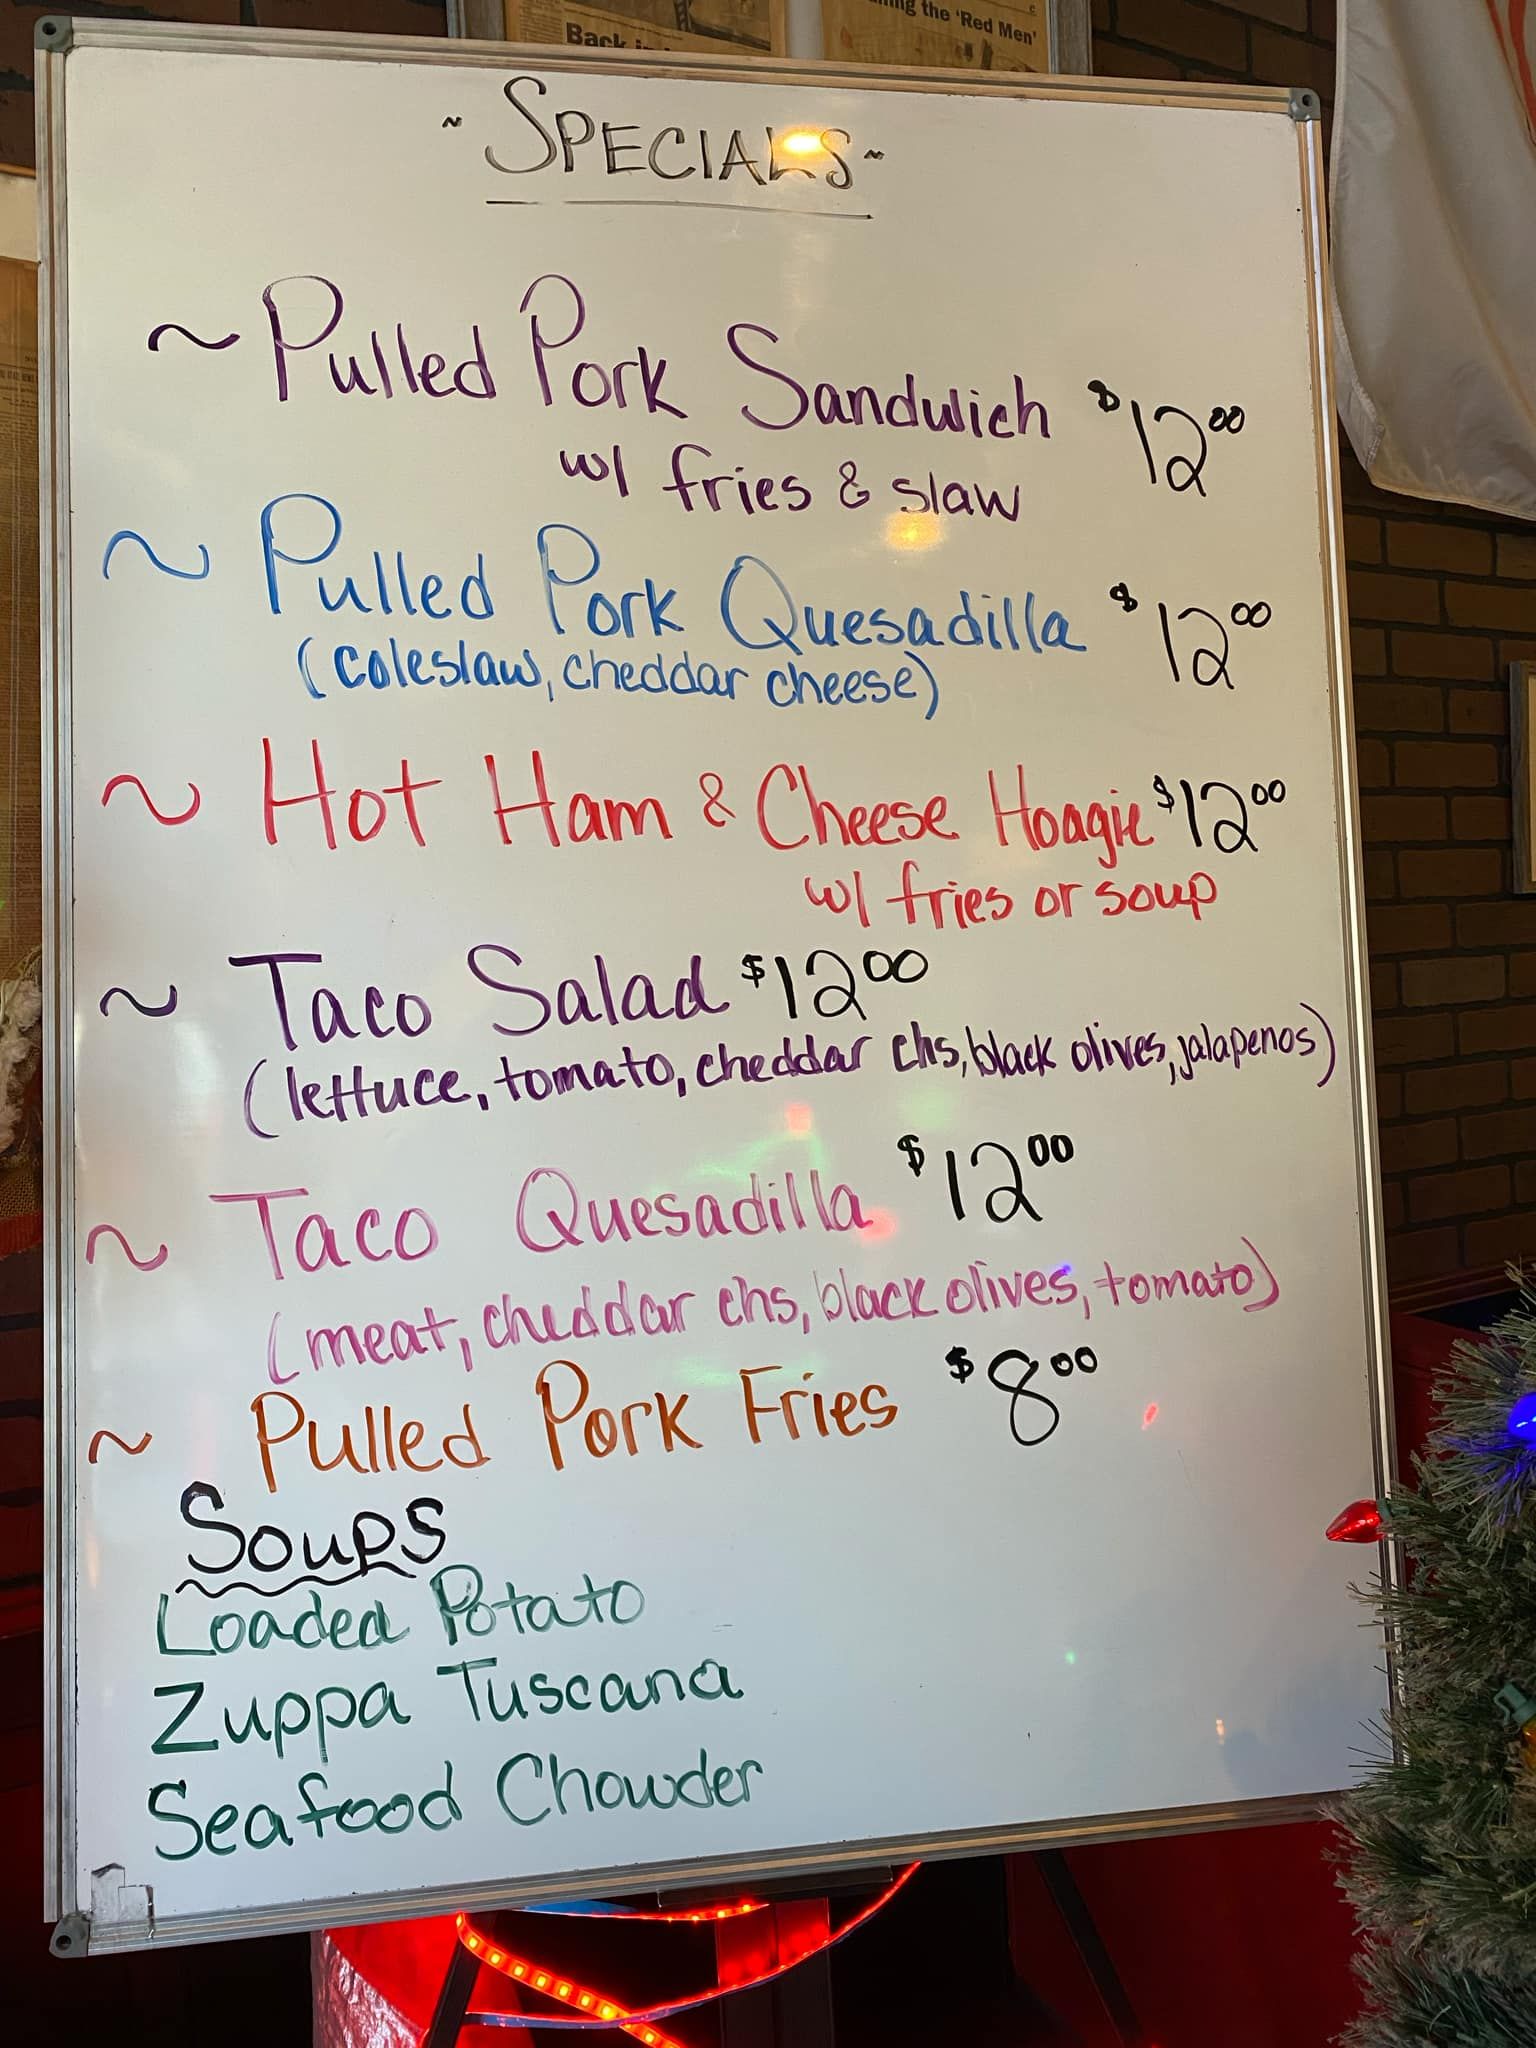 Back in
the 'Red Men'
~ SPECIALS ~
~ Pulled Pork Sandwich $12.00
w/ fries & slaw
~ Pulled Pork Quesadilla $12.00
(coleslaw, cheddar cheese)
~ Hot Ham & Cheese Hoagie $12.00
w/ fries or soup
~ Taco Salad $12.00
(lettuce, tomato, cheddar chs, black olives, jalapenos)
~ Taco Quesadilla $12.00
(meat, cheddar chs, black olives, tomato)
~ Pulled Pork Fries $8.00
Soups
Loaded Potato
Zuppa Tuscana
Seafood Chowder